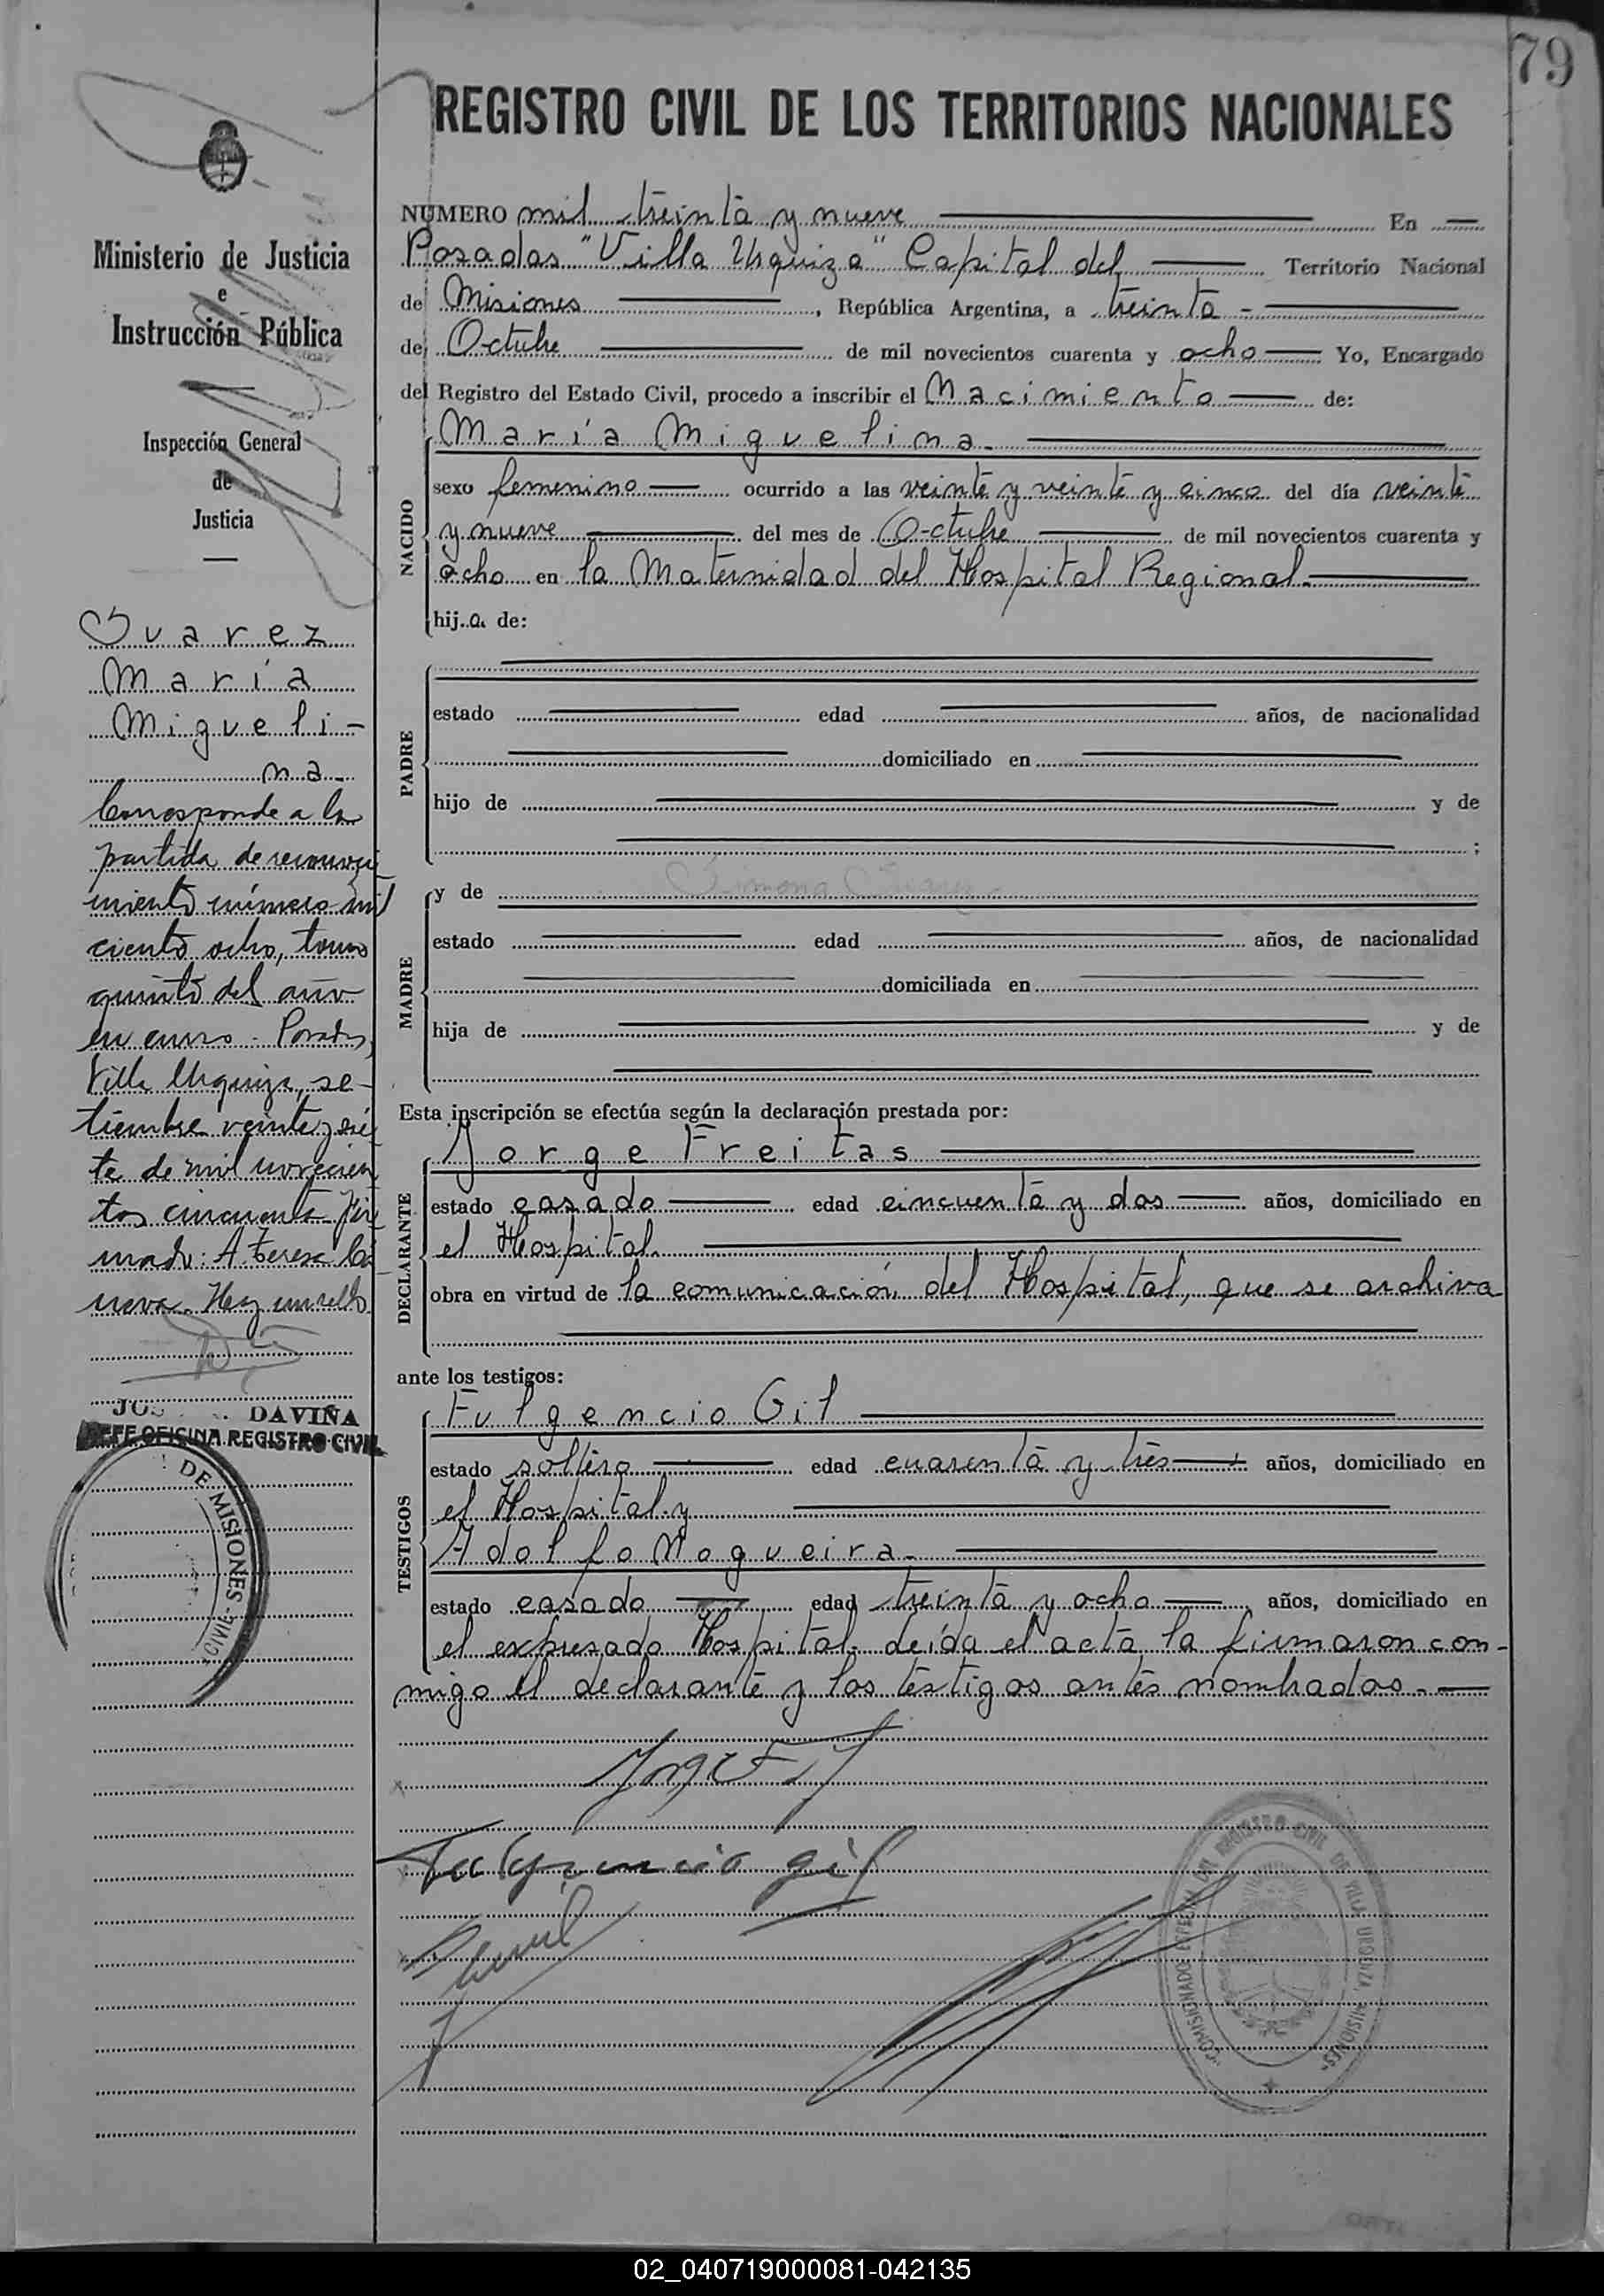 79
REGISTRO CIVIL DE LOS TERRITORIOS NACIONALES
Ministerio de Justicia
e
Instrucción Pública
Inspección General
de
Justicia
Suarez
María
Migueli-
na-
Corresponde a la
partida de reconoci
miento número mil
ciento ocho, tomo
quinto del año
en curso. Posadas,
Villa Urquiza, se-
tiembre veinte y sie
te de mil novecien
tos cincuenta. Fir
mado: A. Teresa
Hay un sello
DAVIÑA
JEFE OFICINA REGISTRO CIVIL
DE MISIONES
CIVIL
NUMERO mil treinta y nueve En
Posadas "Villa Urquiza" Capital del Territorio Nacional
de Misiones, República Argentina, a treinta -
de Octubre de mil novecientos cuarenta y ocho Yo, Encargado
del Registro del Estado Civil, procedo a inscribir el Nacimiento de:
NACIDO
María Miguelina.
sexo femenino ocurrido a las veinte y veinte y cinco del día veinte
y nueve del mes de Octubre de mil novecientos cuarenta y
ocho en la Maternidad del Hospital Regional.
hija de:
PADRE
estado edad años, de nacionalidad
domiciliado en
hijo de y de
;
MADRE
y de Simona Suarez
estado edad años, de nacionalidad
domiciliada en
hija de y de
Esta inscripción se efectúa según la declaración prestada por:
DECLARANTE
Jorge Freitas
estado casado edad cincuenta y dos años, domiciliado en
el Hospital.
obra en virtud de la comunicación del Hospital, que se archiva
ante los testigos:
TESTIGOS
Fulgencio Gil
estado soltero edad cuarenta y tres años, domiciliado en
el Hospital y
Adolfo Nogueira.
estado casado edad treinta y ocho años, domiciliado en
el expresado Hospital. Leída el acta la firmaron con-
migo el declarante y los testigos antes nombrados.-
Fulgencio gil
COMISIONADO ESPECIAL DEL REGISTRO CIVIL DE VILLA URQUIZA, MISIONES
02_040719000081-042135